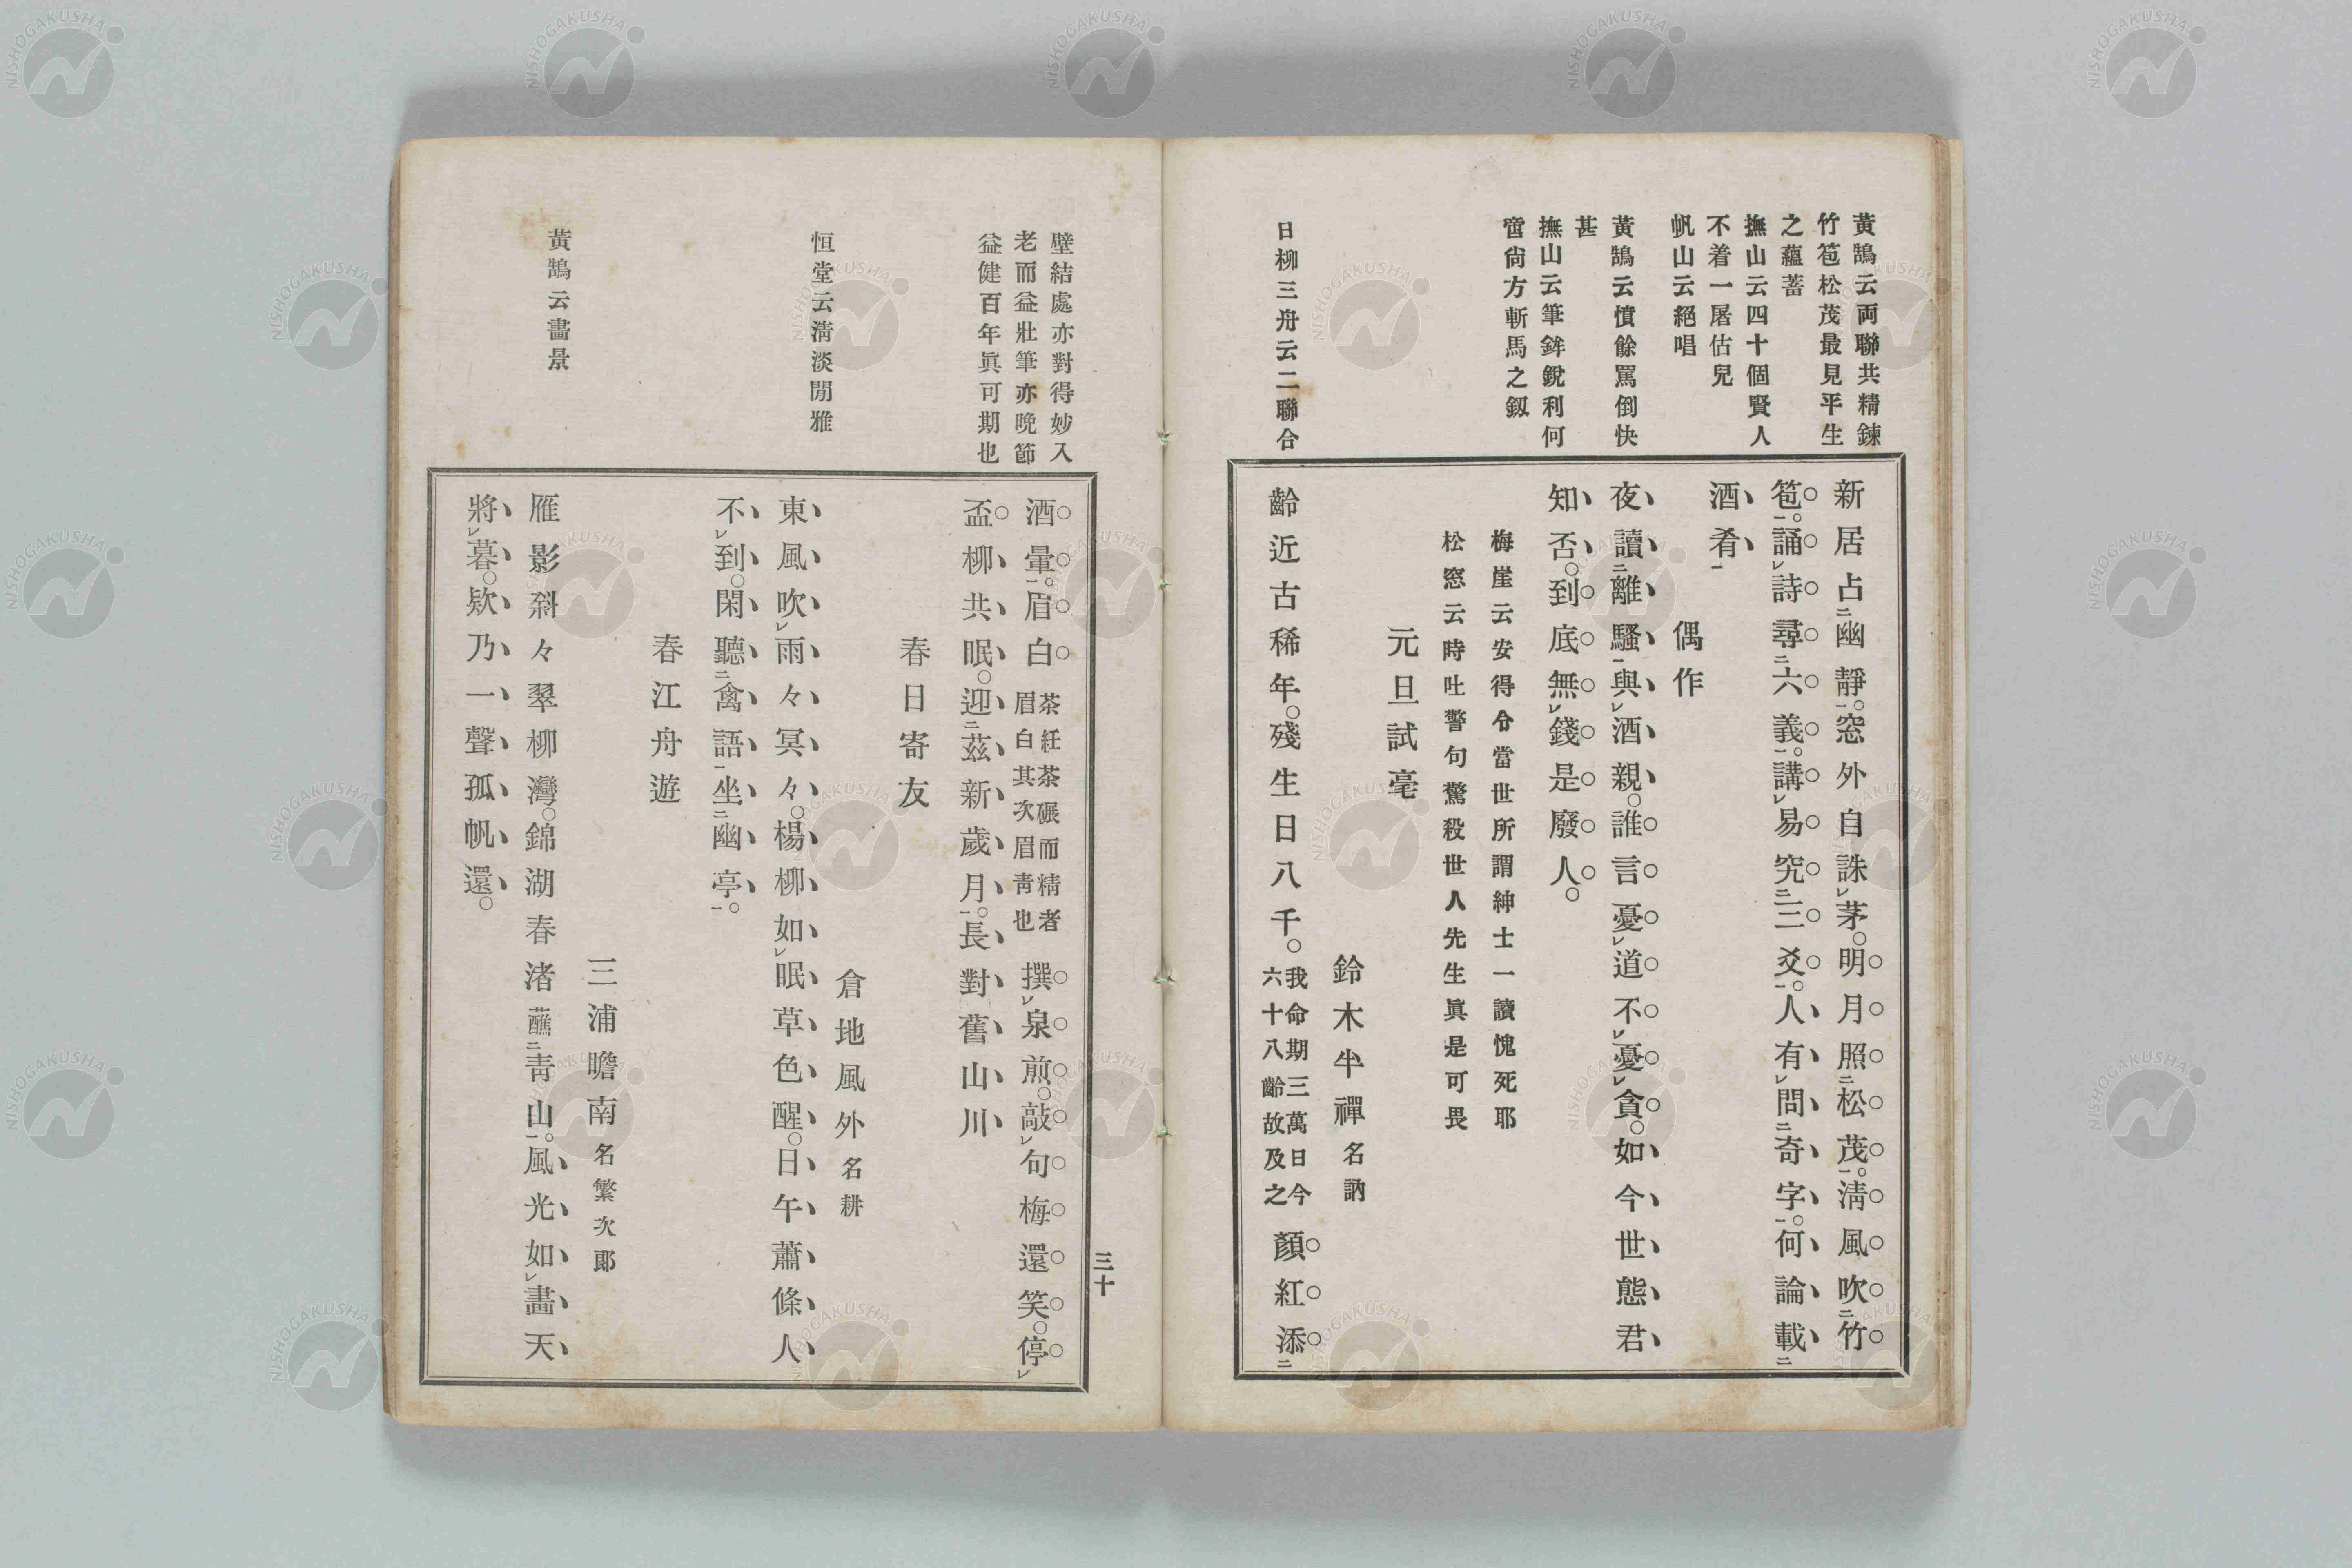 黃鵠云両聯共精鍊
竹苞松茂最見平生
之蘊蓄
撫山云四十個賢人
不着一屠估兒
帆山云絕唱
黃鵠云憤餘罵倒快
甚
撫山云筆鋒銳利何
啻尙方斬馬之釼
日柳三舟云二聯合
新居占二幽靜一。窓外自誅レ茅。明月照二松茂一。淸風吹二竹
苞一。誦レ詩尋二六義一。講レ易究二三爻一。人有レ問二奇字一。何論載二
酒肴一
偶作
夜讀二離騷一與レ酒親。誰言憂レ道不レ憂レ貪。如今世態君
知否。到底無レ錢是廢人。
梅崖云安得令當世所謂紳士一讀愧死耶
松窓云時吐警句驚殺世人先生眞是可畏
元旦試毫
鈴木半禪名訥
齡近古稀年。殘生日八千。我命期三萬日今六十八齡故及之顏紅添二
壁結處亦對得妙入
老而益壯筆亦晩節
益健百年眞可期也
恒堂云淸淡閒雅
黃鵠云畵景
酒暈一。眉白茶紝茶碾而精者眉白其次眉靑也撰レ泉煎。敲レ句梅還笑。停レ
盃柳共眠。迎二茲新歲月一。長對舊山川
春日寄友
倉地風外名耕
東風吹レ雨々冥々。楊柳如レ眠草色醒。日午蕭條人
不レ到。閑聽二禽語一坐二幽亭一。
春江舟遊
三浦瞻南名繁次郞
雁影斜々翠柳灣。錦湖春渚蘸二靑山一。風光如レ畵天
將レ暮。欵乃一聲孤帆還。
三十
NISHOGAKUSHA